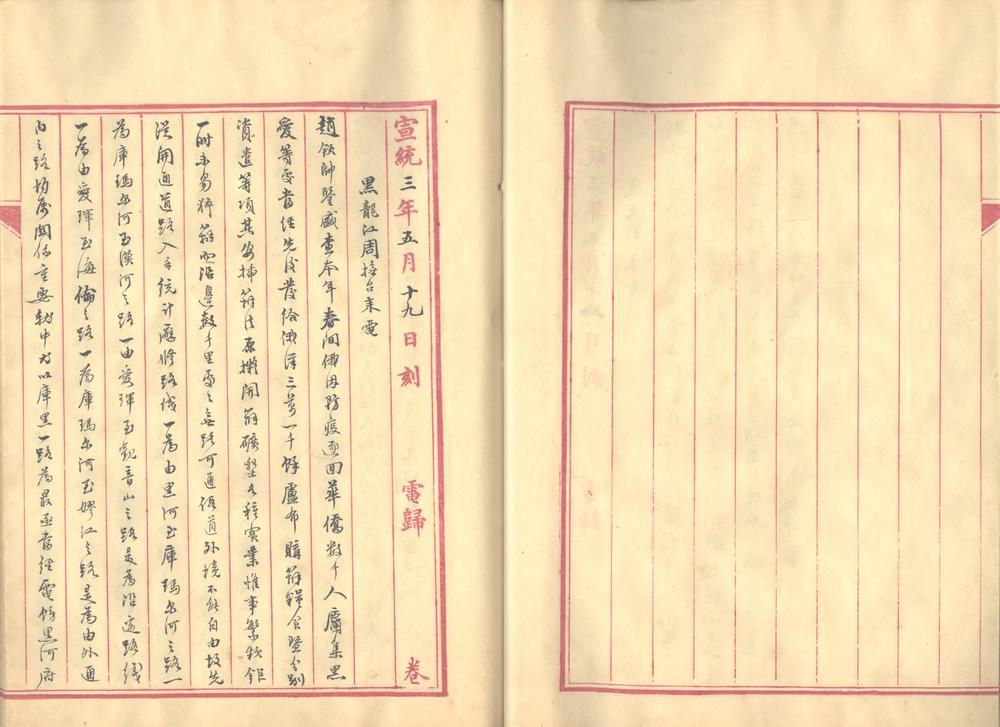 宣統三年五月十九日刻 電歸 卷
黑龍江周撫台來電
趙欽帥鑒盛查本年春間俄因防疫逐回華僑數千人屬集黑
愛等處當經先後發給俄洋三萬一千餘盧布購辦糧食暨分別
資遣等項其安插辦法原擬開辦礦墾各種實業惟事繁款鉅
一時未易猝辦而沿邊數千里處之無路可通假道外境不能自由故先
從開通道路入手統計應修路线一為由黑河至庫瑪尔河之路一
為庫瑪尔河至漠河之路一由愛琿至觀音山之路是為沿邊路綫
一為由愛琿至海倫之路一為庫瑪尔河至嫩江之路是為由外通
內之路均屬關係重要就中尤以庫黑一路為最亟當經電飭黑河府